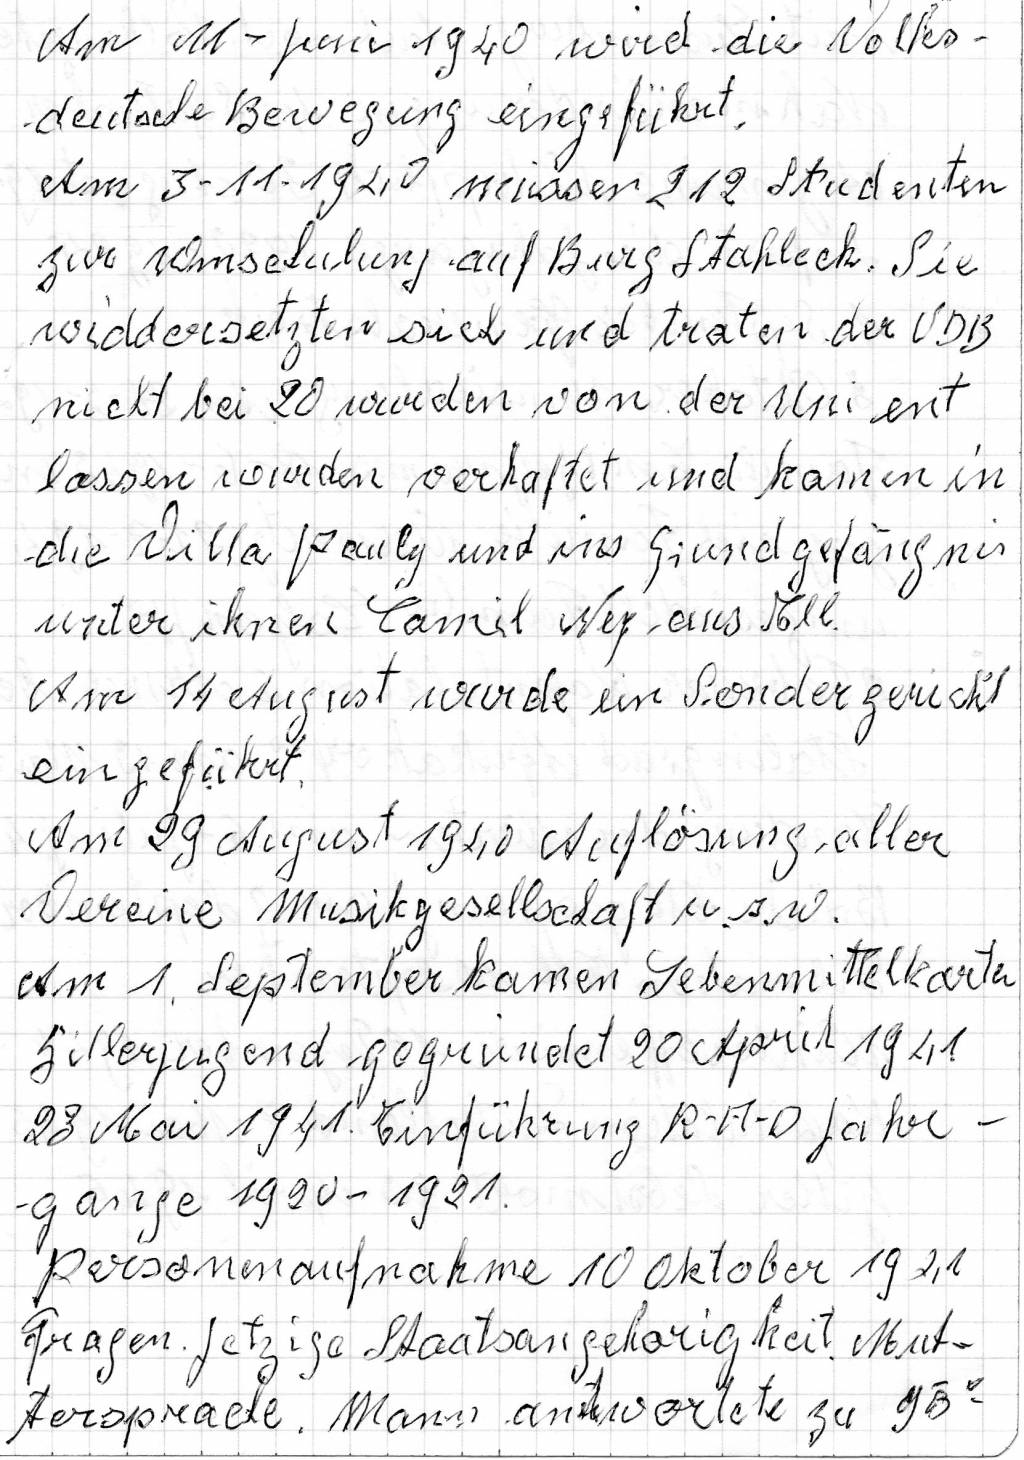 Am 11 - Juni 1940 wird die Volks-
deutsche Bewegung eingeführt.
Am 3-11-1940 müssen 212 Studenten
zur Umschulung auf Burg Stahleck. Sie
widdersetzten sich und traten der VDB
nicht bei 20 wurden von der Uni ent
lassen wurden verhaftet und kamen in
die Villa Pauly und ins Grundgefängnis
unter ihnen Camil Ney aus Ell.
Am 14 August wurde ein Sondergericht
eingeführt.
Am 29 August 1940 Auflösung aller
Vereine Musikgesellschaft u.s.w.
Am 1. September kamen Lebenmittelkarten
Hitlerjugend gegründet 20 April 1941
23 Mai 1941. Einführung R-A-D Jahr-
-gange 1920-1921.
Personenaufnahme 10 Oktober 1941
Fragen. Jetzige Staatsangehorigkeit. Mut-
tersprache. Mann antwortete zu 98%